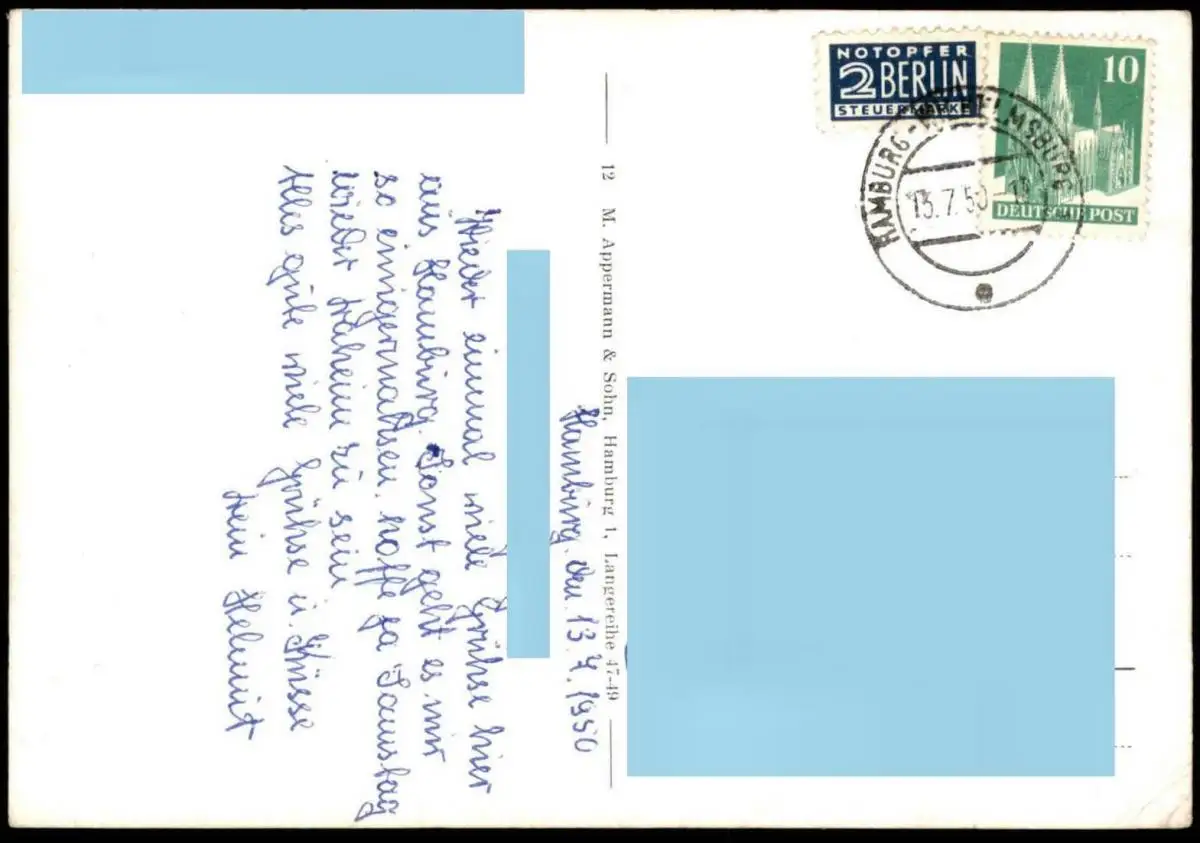 NOTOPFER
2 BERLIN
STEUERMARKE
10
DEUTSCHE POST
HAMBURG-WILHELMSBURG
13.7.50
12 M. Appermann & Sohn, Hamburg 1, Langereihe 47-49
Hamburg, den 13.7.1950
Wieder einmal viele Grühse hier
aus Hamburg. Sonst geht es mir
so einigermahsen. hoffe ja Samstag
wieder daheim zu sein
Alles gute viele Grühse u. Küsse
dein Helmut